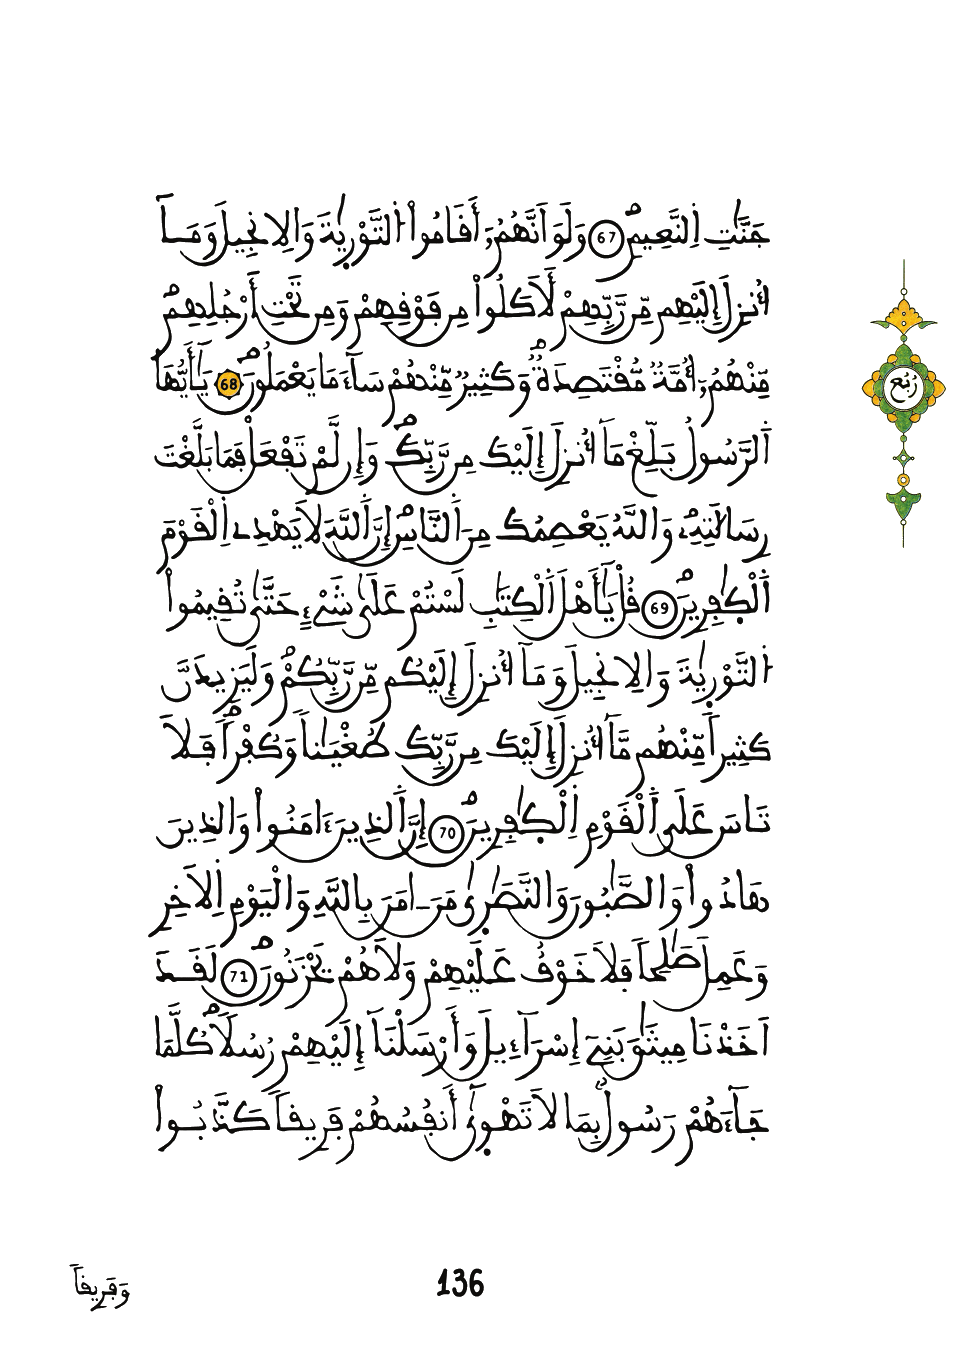 جَنَّٰتِ اِ۬لنَّعِيمِۖ 67 وَلَوَ اَنَّهُمُۥٓ أَقَامُواْ اُ۬لتَّوْر۪يٰةَ وَالِانجِيلَ وَمَآ
أُنزِلَ إِلَيْهِم مِّن رَّبِّهِمْ لَأَكَلُواْ مِن فَوْقِهِمْ وَمِن تَحْتِ أَرْجُلِهِمۖ
مِّنْهُمُۥٓ أُمَّةٞ مُّقْتَصِدَةٞۖ وَكَثِيرٞ مِّنْهُمْ سَآءَ مَا يَعْمَلُونَۖ 68 يَٰٓأَيُّهَا
اَ۬لرَّسُولُ بَلِّغْ مَآ أُنزِلَ إِلَيْكَ مِن رَّبِّكَۖ وَإِن لَّمْ تَفْعَلْ فَمَا بَلَّغْتَ
رِسَالَٰتِهِۦۖ وَاللَّهُ يَعْصِمُكَ مِنَ اَ۬لنَّاسِۖ إِنَّ اَ۬للَّهَ لَا يَهْدِے اِ۬لْقَوْمَ
اَ۬لْكٰ۪فِرِينَۖ 69 قُلْ يَٰٓأَهْلَ اَ۬لْكِتَٰبِ لَسْتُمْ عَلَىٰ شَےْءٍ حَتَّىٰ تُقِيمُواْ
اُ۬لتَّوْر۪يٰةَ وَالِانجِيلَ وَمَآ أُنزِلَ إِلَيْكُم مِّن رَّبِّكُمْۖ وَلَيَزِيدَنَّ
كَثِيراٗ مِّنْهُم مَّآ أُنزِلَ إِلَيْكَ مِن رَّبِّكَ طُغْيَٰناٗ وَكُفْراٗۖ فَلَا
تَاسَ عَلَى اَ۬لْقَوْمِ اِ۬لْكٰ۪فِرِينَۖ 70 إِنَّ اَ۬لذِينَ ءَامَنُواْ وَالذِينَ
هَادُواْ وَالصَّٰبُونَ وَالنَّصَٰر۪ىٰ مَنَ اٰمَنَ بِاللَّهِ وَالْيَوْمِ اِ۬لَاخِرِ
وَعَمِلَ صَٰلِحاٗ فَلَا خَوْفٌ عَلَيْهِمْ وَلَا هُمْ يَحْزَنُونَۖ 71 لَقَدَ
اَخَذْنَا مِيثَٰقَ بَنِےٓ إِسْرَآءِيلَ وَأَرْسَلْنَآ إِلَيْهِمْ رُسُلاٗۖ كُلَّمَا
جَآءَهُمْ رَسُولُۢ بِمَا لَا تَهْو۪ىٰٓ أَنفُسُهُمْ فَرِيقاٗ كَذَّبُواْ
رُبُع
وَفَرِيقاٗ
136